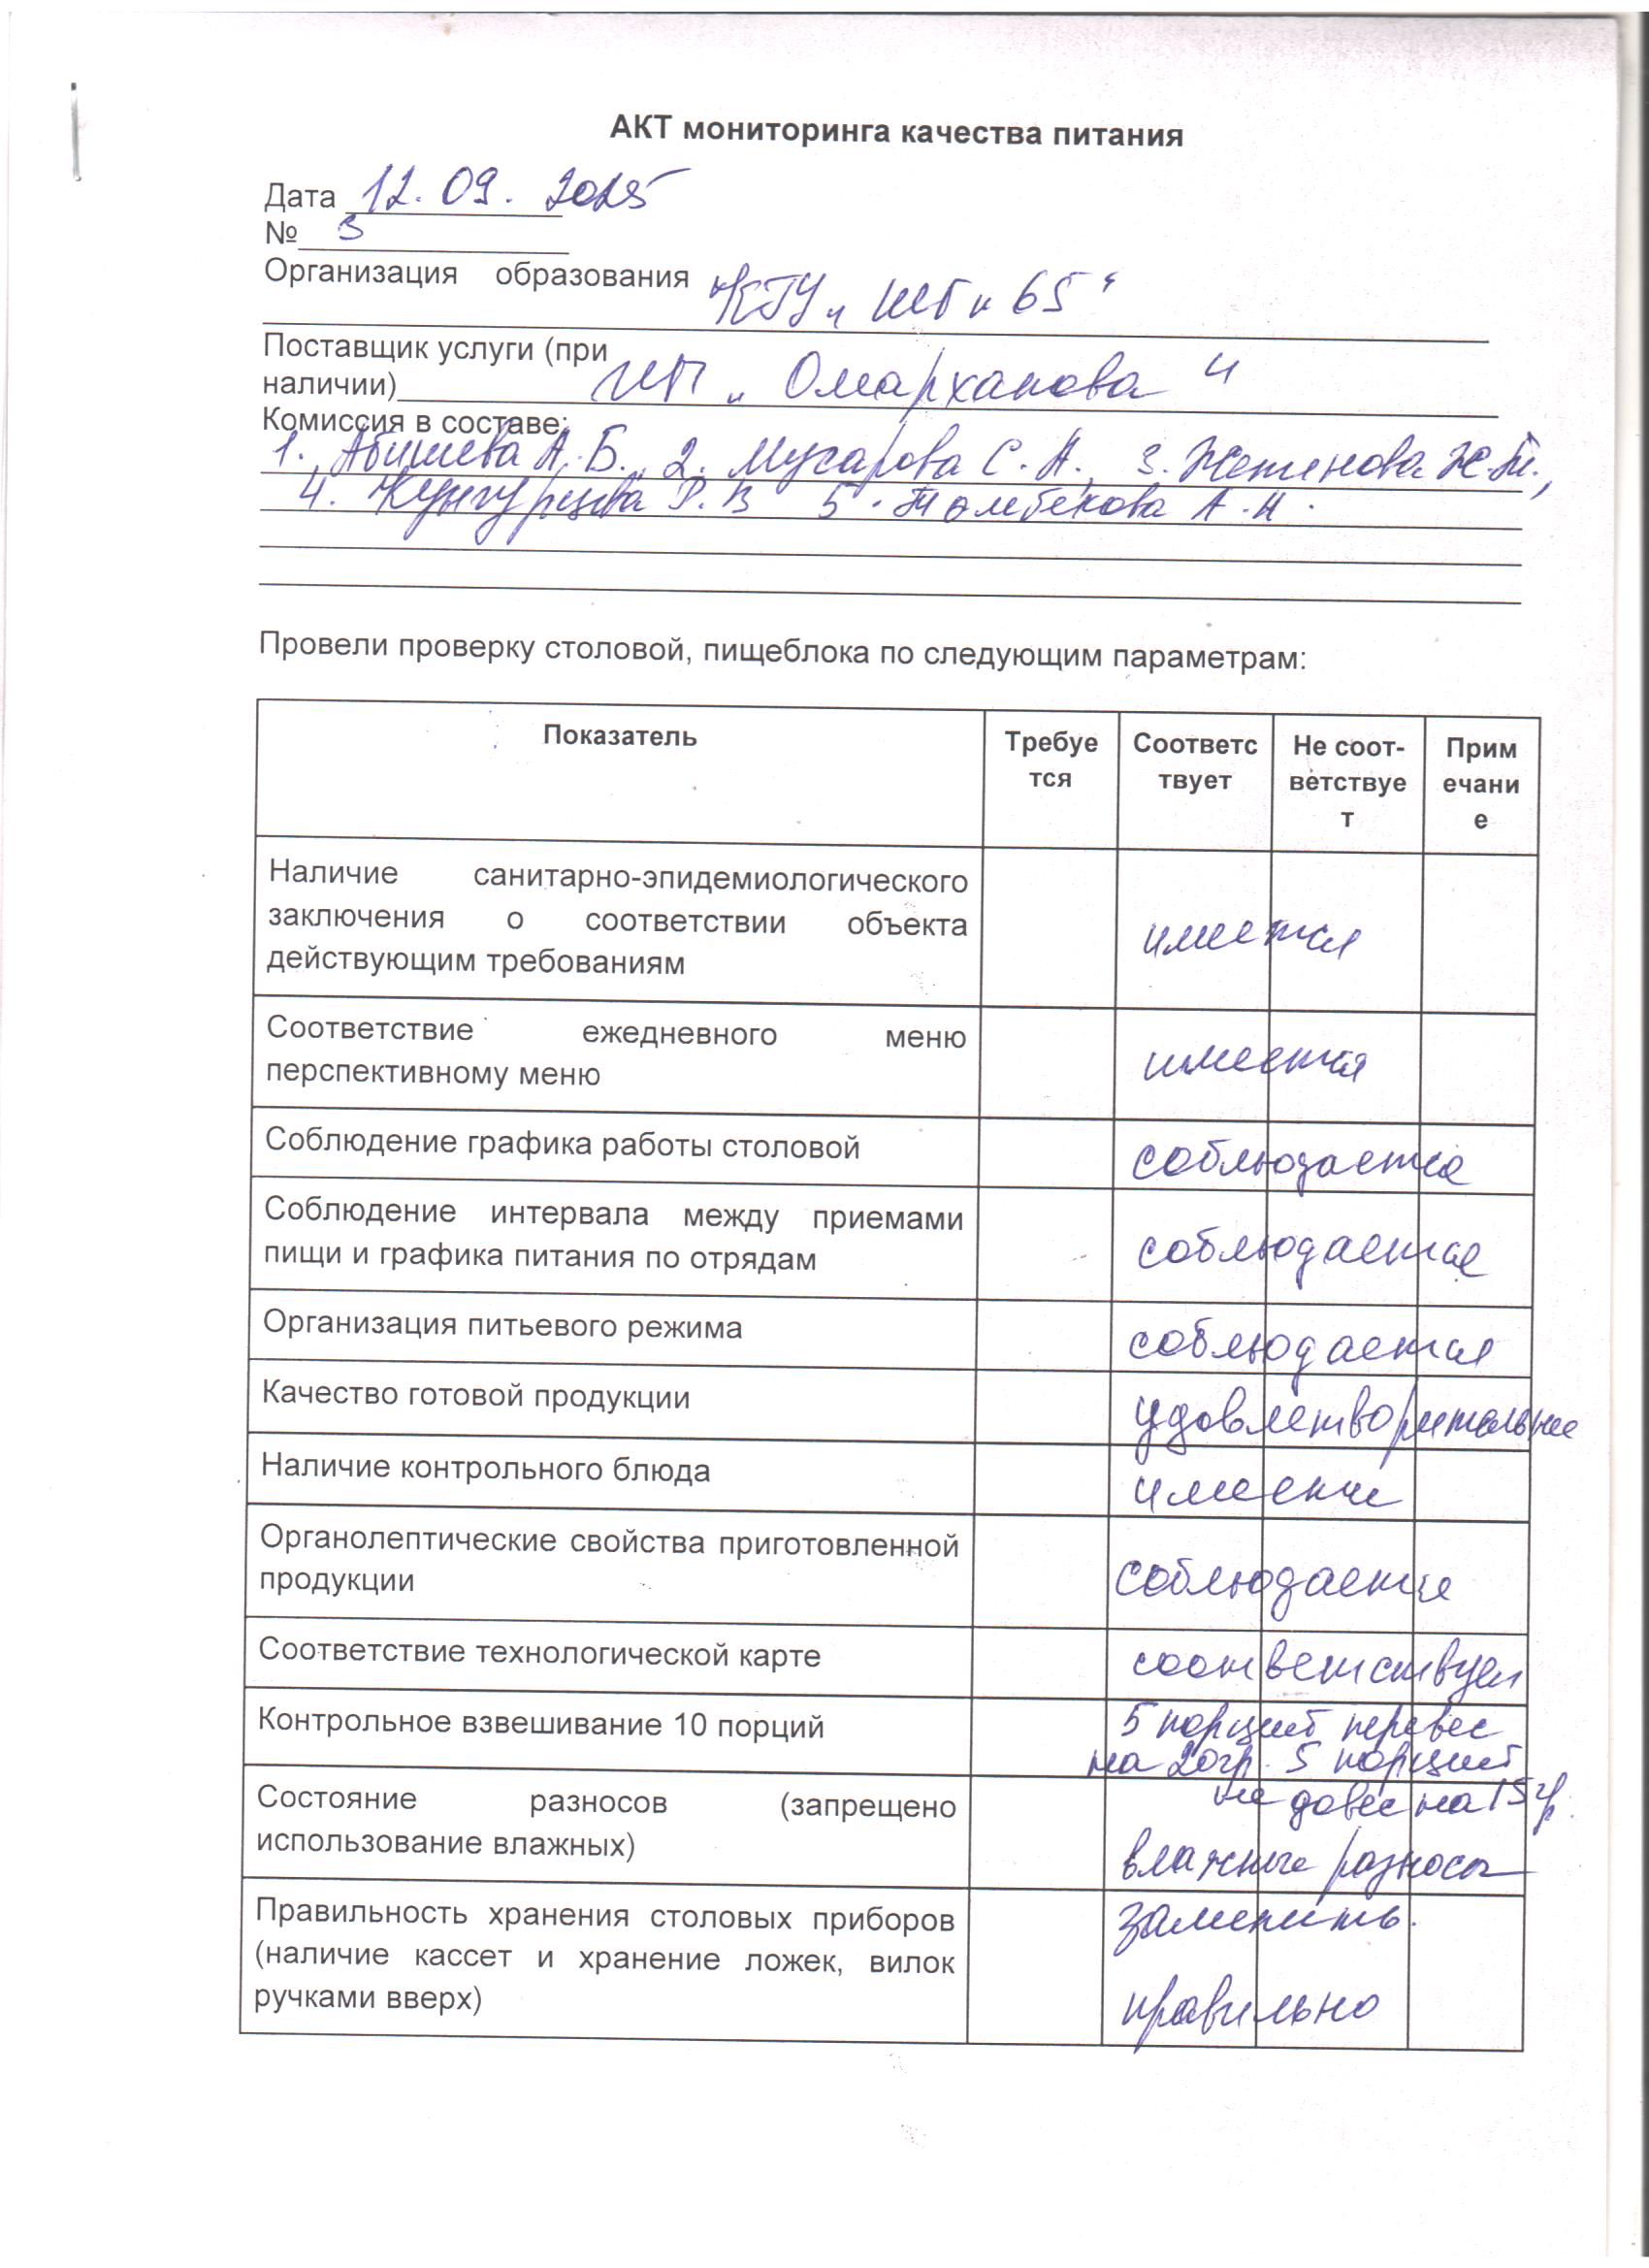 АКТ мониторинга качества питания
Дата 12.09. 2025
№ 3
Организация образования
КГУ "
65"
Поставщик услуги (при
наличии) ИП „ Омарханова "
Комиссия в составе:
1. Абишева А.Б., 2. Мусарова С.А., 3. Жетенова
4. Р.В 5. Толмбекова А.Н.
Провели проверку столовой, пищеблока по следующим параметрам:
Показатель
Требуе
тся
Соответс
твует
Не соот-
ветствуе
т
Прим
ечани
е
Наличие санитарно-эпидемиологического
заключения о соответствии объекта
действующим требованиям
имеется
Соответствие ежедневного меню
перспективному меню
имеется
Соблюдение графика работы столовой
соблюдается
Соблюдение интервала между приемами
пищи и графика питания по отрядам
соблюдается
Организация питьевого режима
соблюдается
Качество готовой продукции
удовлетворительное
Наличие контрольного блюда
имеется
Органолептические свойства приготовленной
продукции
соблюдается
Соответствие технологической карте
соответствует
Контрольное взвешивание 10 порций
5 порций перевес
на 20гр. 5 порций
не довес на 15гр.
Состояние разносов (запрещено
использование влажных)
влажные разносы
заменить.
Правильность хранения столовых приборов
(наличие кассет и хранение ложек, вилок
ручками вверх)
правильно